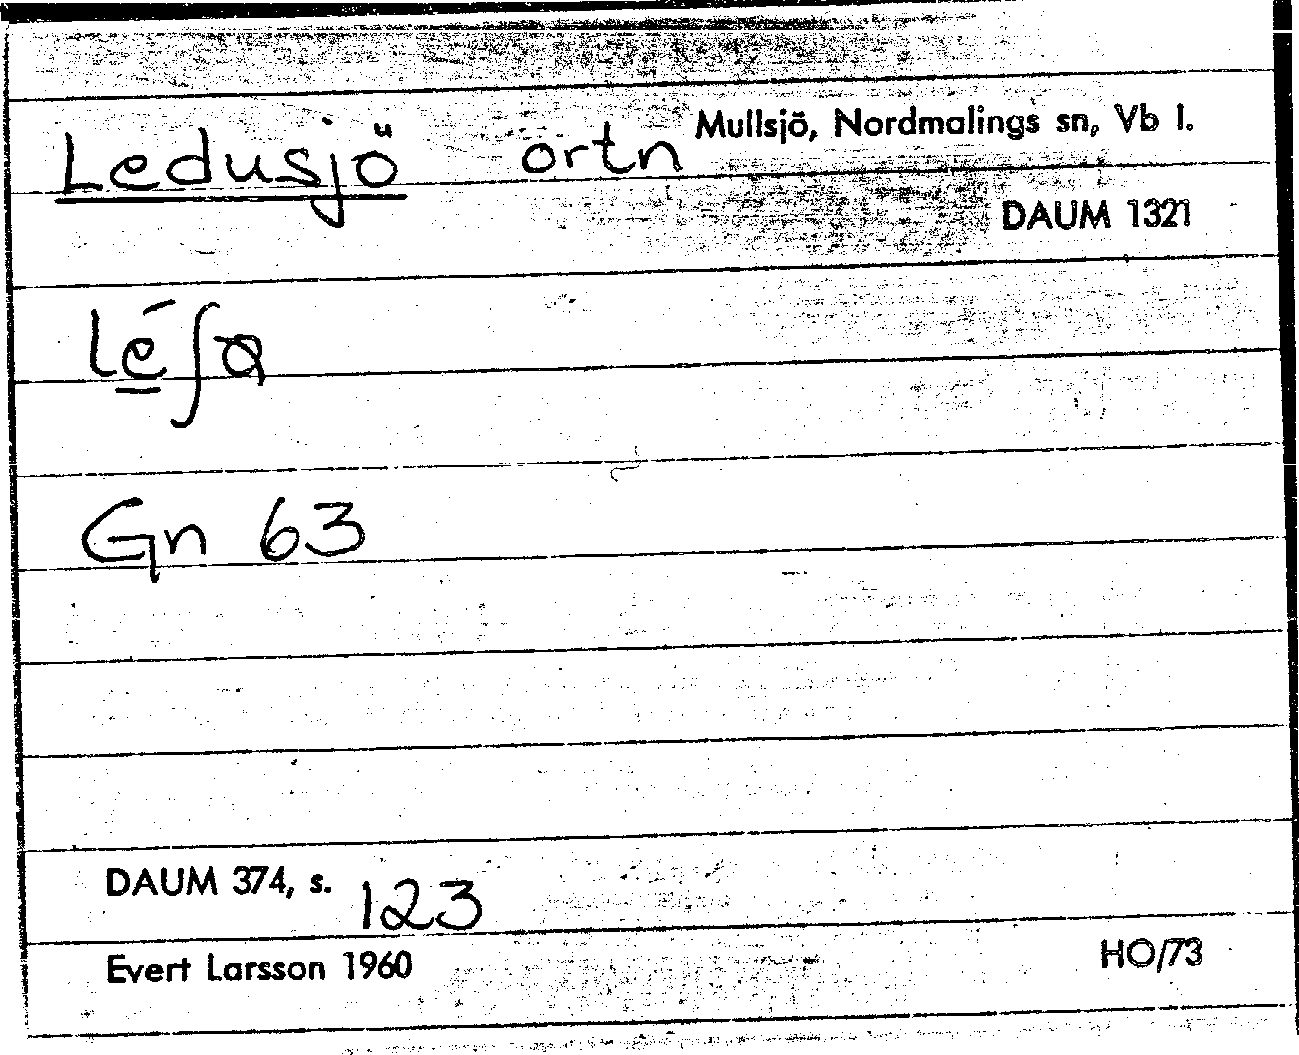 Ledusjö ortn Mullsjö, Nordmalings sn, Vb l.
DAUM 1321
Gn 63
DAUM 374, s. 123
Evert Larsson 1960
HO/73